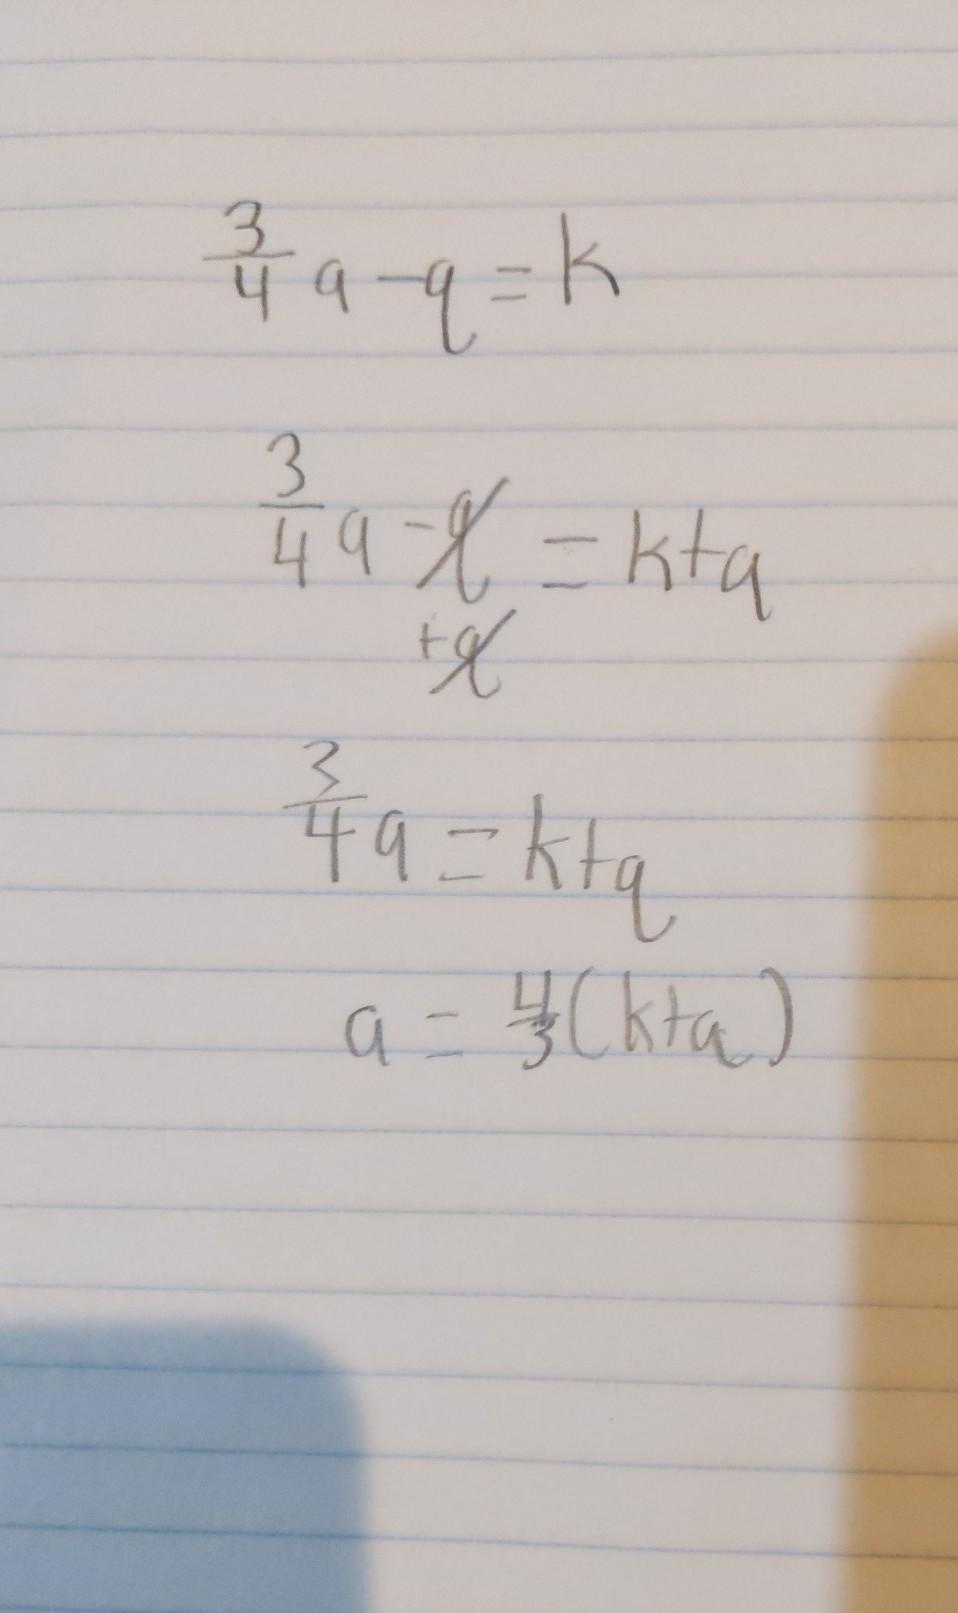 3/4 a - q = k
3/4 a - q = k + q
+ q
3/4 a = k + q
a = 4/3 (k + a)